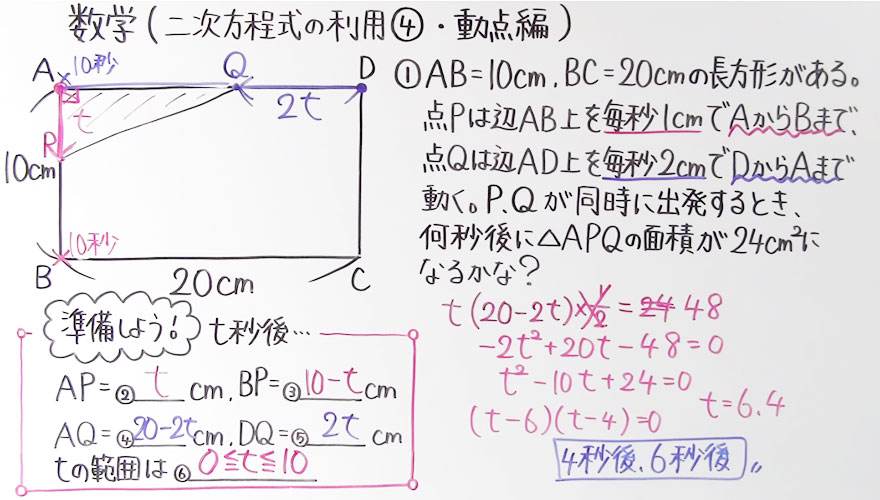 数学(二次方程式の利用④・動点編)
A ×10秒 Q D
t 2t
P
10cm
10秒
B 20cm C
①AB=10cm,BC=20cmの長方形がある。
点Pは辺AB上を毎秒1cmでAからBまで、
点Qは辺AD上を毎秒2cmでDからAまで
動く。P,Qが同時に出発するとき、
何秒後に△APQの面積が24cm²に
なるかな?
準備しよう! t秒後…
AP=②t cm,BP=③10-t cm
AQ=④20-2t cm,DQ=⑤2t cm
tの範囲は⑥0≦t≦10
t(20-2t)×1/2=24 48
-2t²+20t-48=0
t²-10t+24=0
(t-6)(t-4)=0 t=6.4
4秒後、6秒後〃